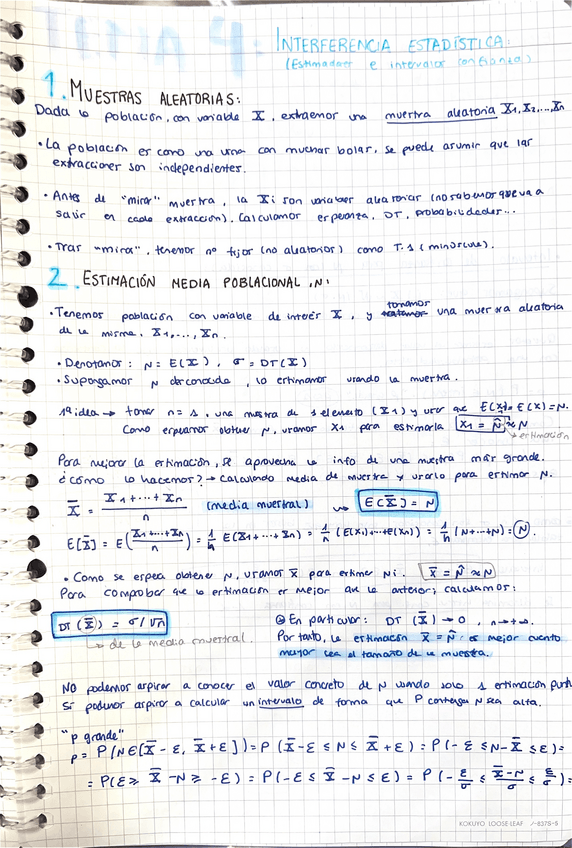 TEMA 4:
INTERFERENCIA ESTADÍSTICA:
(Estimadores e intervalos confianza)
1. MUESTRAS ALEATORIAS:
Dada la población, con variable X, extraemos una muestra aleatoria X1, X2, ..., Xn
• La población es como una urna con muchas bolas, se puede asumir que las
extracciones son independientes.
• Antes de "mirar" muestra, la Xi son variables aleatorias (no sabemos que va a
salir en cada extracción). Calculamos esperanza, DT, probabilidades...
• Tras "mirar", tenemos nº fijos (no aleatorios) como 7.1 (minúscula).
2. ESTIMACIÓN MEDIA POBLACIONAL, µ:
• Tenemos población con variable de interés X, y tomamos una muestra aleatoria
de la misma, X1, ..., Xn.
• Denotamos: µ = E(X), σ = DT(X)
• Supongamos µ desconocida, la estimamos usando la muestra.
1ª idea → tomar n = 1, una muestra de 1 elemento (X1) y usar que E(X1) = E(X) = µ.
Como esperamos obtener µ, usamos X1 para estimarla x1 = µ̂ ≈ µ
↳ estimación
Para mejorar la estimación, se aprovecha la info de una muestra más grande.
¿Cómo lo hacemos? → calculando media de muestra y usarlo para estimar µ.
X̄ = (X1 + ... + Xn) / n (media muestral) → E(X̄) = µ
E[X̄] = E((X1 + ... + Xn) / n) = 1/n E(X1 + ... + Xn) = 1/n (E(X1) + ... + E(Xn)) = 1/n (µ + ... + µ) = µ
• Como se espera obtener µ, usamos x̄ para estimar µ: x̄ = µ̂ ≈ µ
Para comprobar que la estimación es mejor que la anterior, calculamos:
DT(X̄) = σ/√n
↳ de la media muestral.
En particular: DT(X̄) → 0, n → +∞.
Por tanto, la estimación x̄ = µ̂ es mejor cuanto
mayor sea el tamaño de la muestra.
NO podemos aspirar a conocer el valor concreto de µ usando solo 1 estimación
Sí podemos aspirar a calcular un intervalo de forma que P contenga µ sea alta.
"p grande"
p = P(µ ∈ [X̄ - ε, X̄ + ε]) = P(X̄ - ε ≤ µ ≤ X̄ + ε) = P(-ε ≤ µ - X̄ ≤ ε) =
= P(ε ≥ X̄ - µ ≥ -ε) = P(-ε ≤ X̄ - µ ≤ ε) = P(-ε/σ ≤ (X̄ - µ)/σ ≤ ε/σ) =
KOKUYO LOOSE-LEAF ノ-837S-5